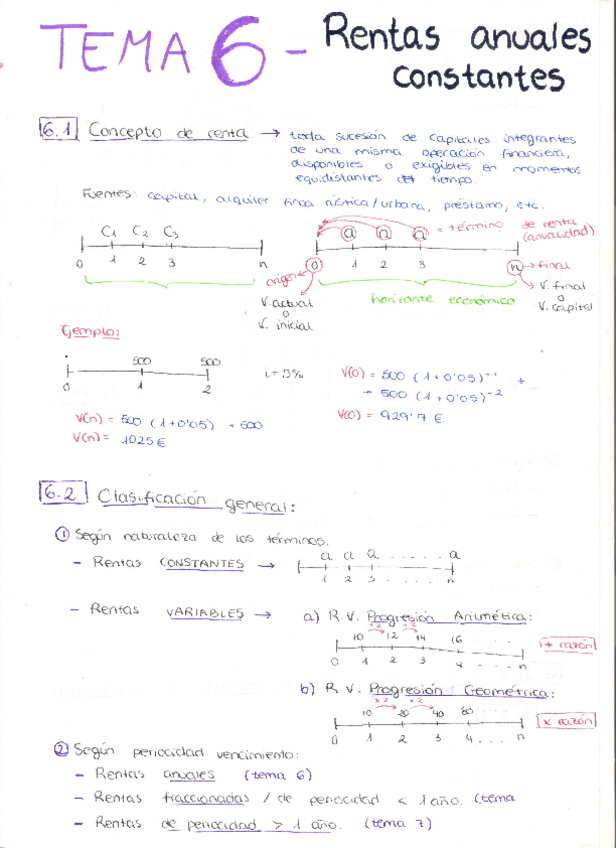 TEMA 6 - Rentas anuales
constantes
6.1 Concepto de renta → toda sucesión de capitales integrantes
de una misma operación financiera,
disponibles o exigibles en momentos
equidistantes del tiempo.
Fuentes: capital, alquiler finca rústica/urbana, préstamo, etc.
C1 C2 C3
0 1 2 3 n
a a a = término de renta
(anualidad)
0 1 2 3 n → final
origen
V. actual
o
V. inicial
horizonte económico
V. final
o
V. capital
Ejemplo:
500 500
0 1 2
i = 5%
V(0) = 500 (1+0'05)⁻¹ +
+ 500 (1+0'05)⁻²
V(0) = 929'7 €
V(n) = 500 (1+0'05) + 500
V(n) = 1025 €
6.2 Clasificación general:
① Según naturaleza de los términos.
- Rentas CONSTANTES →
a a a ...... a
1 2 3 ...... n
- Rentas VARIABLES → a) R.V. Progresión Aritmética:
+2 +2
10 12 14 16 ...
0 1 2 3 4 ... n
+ razón
b) R.V. Progresión Geométrica:
x2 x2
10 20 40 80
0 1 2 3 4 ... n
x razón
② Según periocidad vencimiento:
- Rentas anuales (tema 6)
- Rentas fraccionadas / de periocidad < 1 año. (tema
- Rentas de periocidad > 1 año. (tema 7)